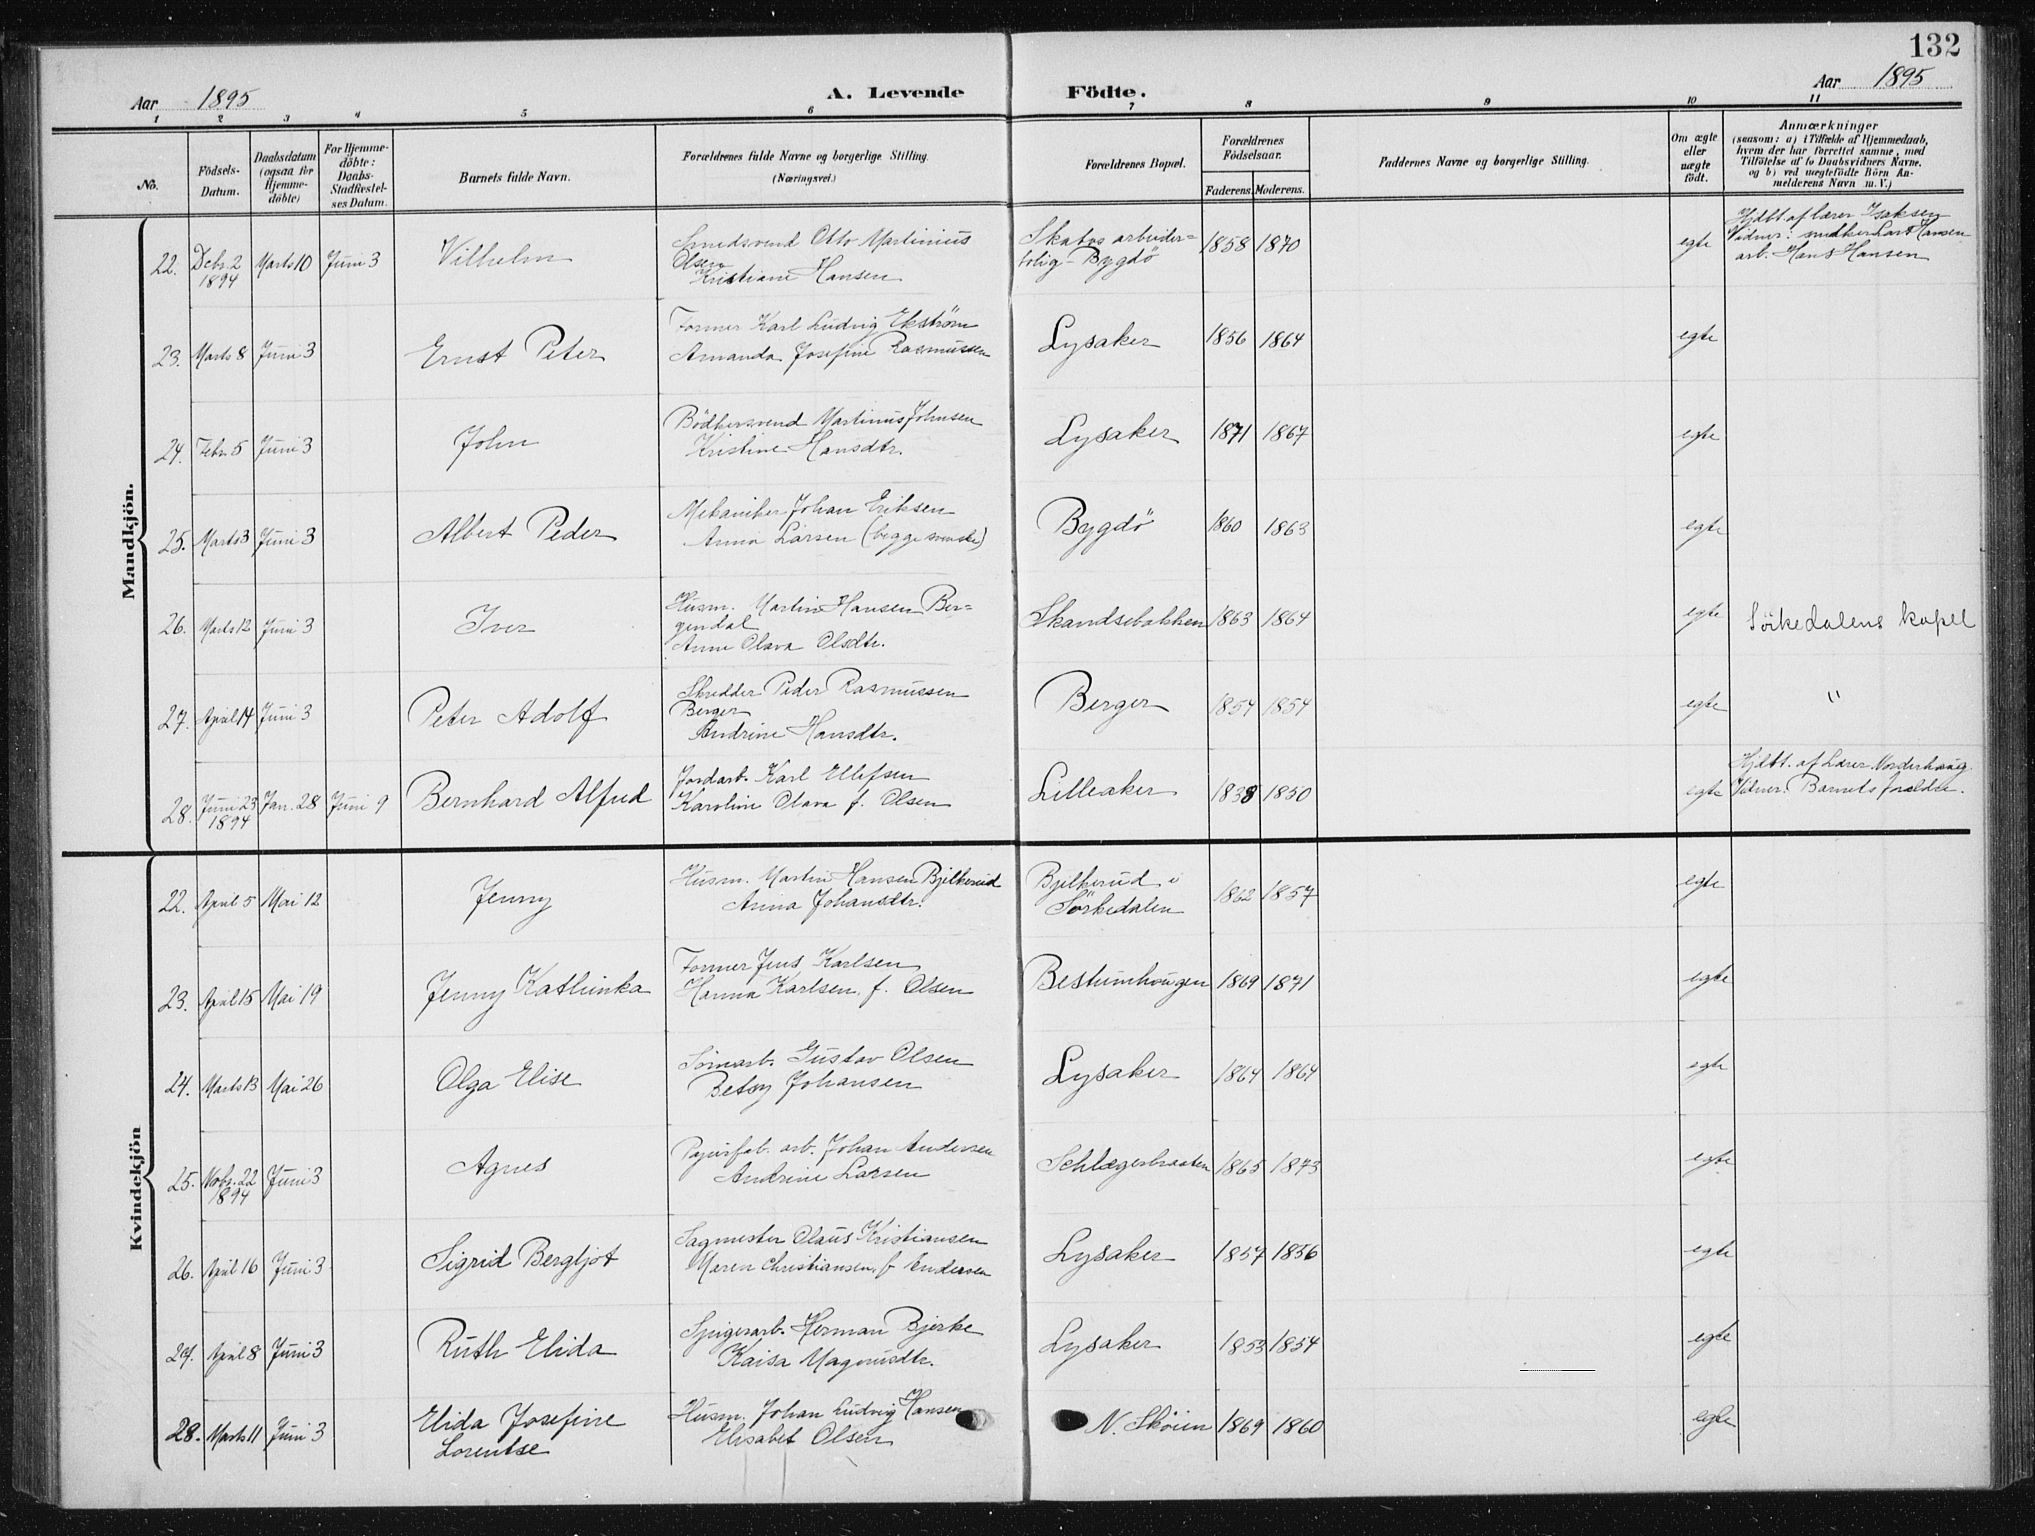 132
Aar 1895 A. Levende Födte. Aar 1895
1 2 3 4 5 6 7 8 9 10 11
No.
Födsels-Datum.
Daabsdatum (ogsaa for Hjemme-döbte)
For Hjemme-döbte: Daabs-Stadfæstel-ses Datum.
Barnets fulde Navn.
Forældrenes fulde Navne og borgerlige Stilling.
(Næringsvei.)
Forældrenes Bopæl.
Forældrenes Födselsaar.
Faderens. Moderens.
Faddernes Navne og borgerlige Stilling.
Om ægte eller uægte födt.
Anmærkninger
(seasom: a) i Tilfælde af Hjemmedaab,
hvem der har forrettet samme, med
Tilföielse af to Daabsvidners Navne,
og b) ved uægtefödte Börn An-
melderens Navn m. V.)
Mandkjön.
22. Decbr. 2 1894 Marts 10 Juni 3 Vilhelm Smedsvend Otto Martinius Olsen Kristiane Hansen Skabos arbeider=bolig - Bygdö 1858 1870 egte Hjdbt. af lærer Isaksen Vidner: snedker Lars Hansen arb. Hans Hansen
23. Marts 8 Juni 3 Ernst Peter Former Karl Ludvig Ekström Amanda Josefine Rasmussen Lysaker 1856 1864 egte
24. Febr. 5 Juni 3 John Bödkersvend Martinus Johnsen Kristine Hansdtr. Lysaker 1871 1867 egte
25. Marts 3 Juni 3 Albert Peder Mekaniker Johan Eriksen Anna Larsen (begge svenske) Bygdö 1860 1863 egte
26. Marts 12 Juni 3 Iver Husm. Martin Hansen Ber=gendal Anne Olava Olsdtr. Skandsebakken 1863 1864 egte Sörkedalens kapel
27. April 14 Juni 3 Peter Adolf Skredder Peder Rasmussen Berger Andrine Hansdtr. Berger 1854 1854 egte "
28. Juni 23 1894 Jan. 28 Juni 9 Bernhard Alfred Jordarb. Karl Ellefsen Karoline Olava f. Olsen Lilleaker 1838 1850 egte Hjdbt. af Lærer Norderhaug. Vidner: Barnets foreldre.
Kvindekjön
22. April 5 Mai 12 Jenny Husm. Martin Hansen Bjilkerud Anna Johansdtr. Bjilkerud i Sörkedalen 1862 1857 egte
23. April 15 Mai 19 Jenny Kathinka Former Jens Karlsen Hanna Karlsen f. Olsen Bestumhougen 1869 1871 egte
24. Marts 13 Mai 26 Olga Elise Sömarb. Gustav Olsen Betsy Johansen Lysaker 1864 1864 egte
25. Novbr. 22 1894 Juni 3 Agnes Papirfab. arb. Johan Andersen Andrine Larsen Schlægerbraaten 1865 1873 egte
26. April 16 Juni 3 Sigrid Bergljot Sagmester Olaus Kristiansen Maren Christiansen f. Endersen Lysaker 1857 1856 egte
27. April 8 Juni 3 Ruth Elida Spigerarb. Herman Bjerke Kaisa Magnusdtr. Lysaker 1853 1854 egte
28. Marts 11 Juni 3 Elida Josefine Lorentse Husm. Johan Ludvig Hansen Elisabet Olsen N. Sköien 1869 1860 egte